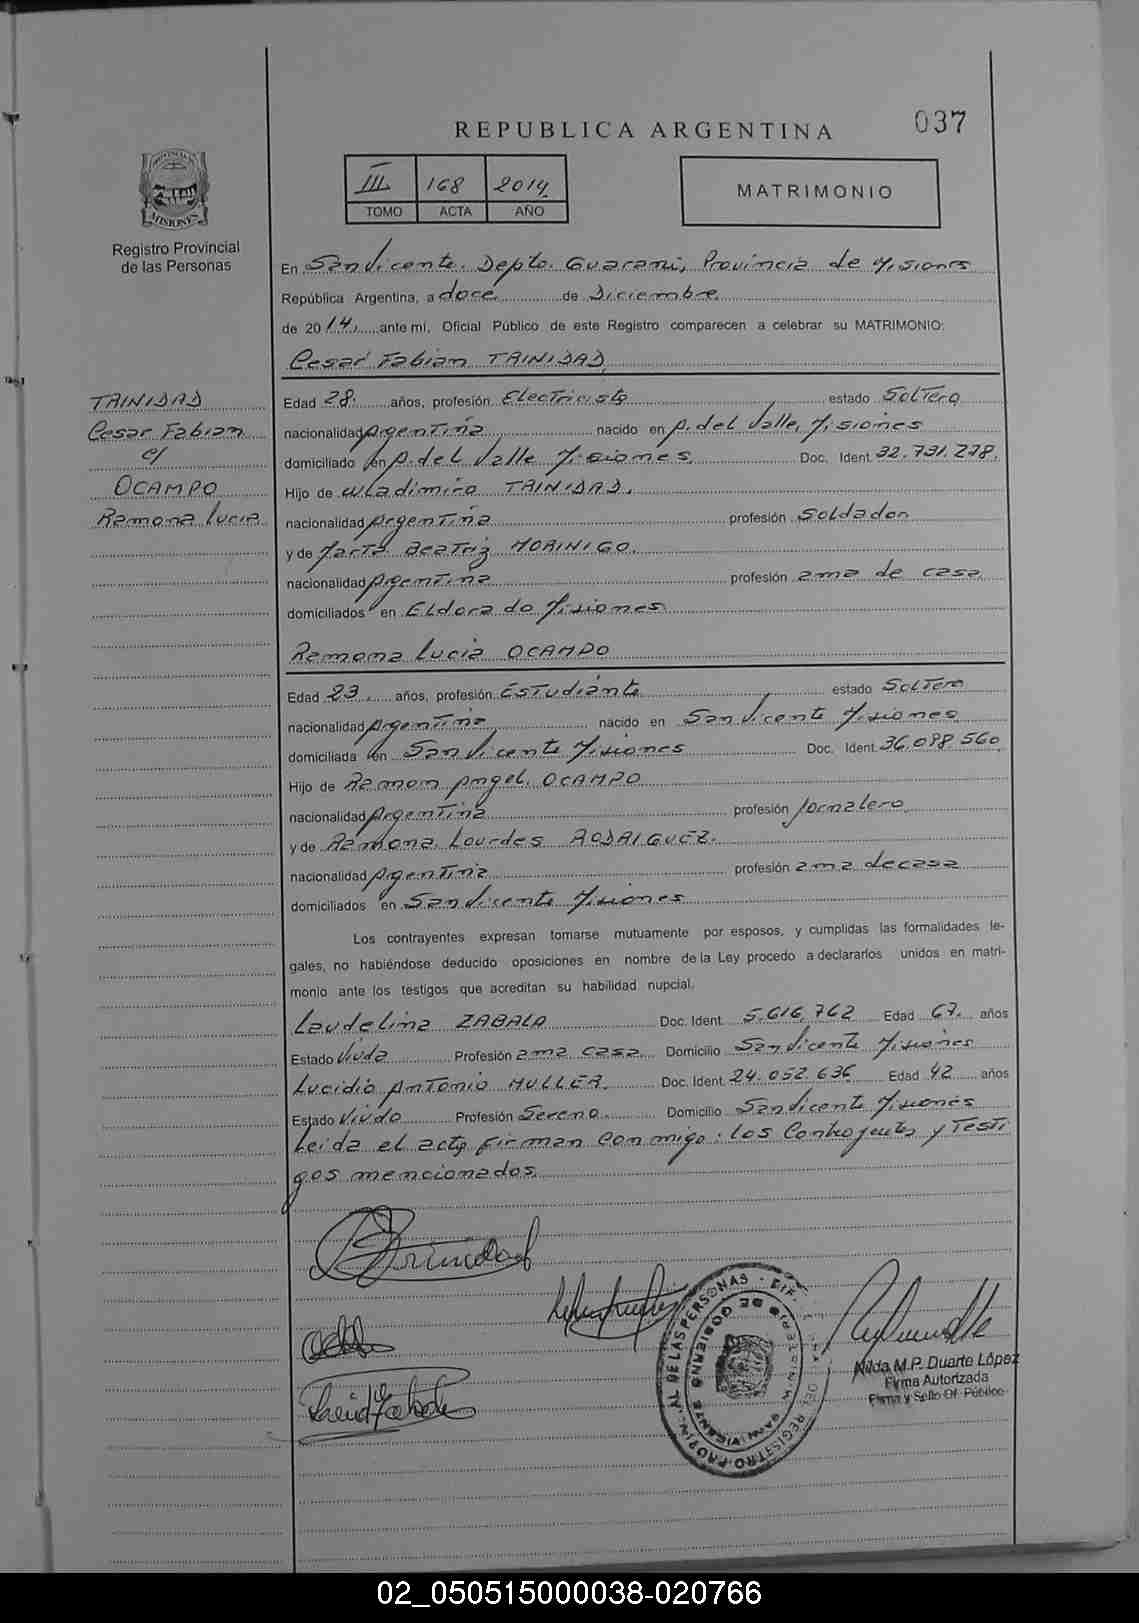 037
REPUBLICA ARGENTINA
III 168 2014
TOMO ACTA AÑO
MATRIMONIO
PROVINCIA DE
MISIONES
Registro Provincial
de las Personas
En San Vicente. Depto. Guarani, Provincia de Misiones
República Argentina, a doce de Diciembre
de 2014, ante mí, Oficial Público de este Registro comparecen a celebrar su MATRIMONIO:
Cesar Fabian TRINIDAD
TRINIDAD
Cesar Fabian
c/
OCAMPO
Ramona Lucia
Edad 28. años, profesión Electricista estado Soltero
nacionalidad Argentina nacido en P. del Valle, Misiones
domiciliado en P. del Valle Misiones Doc. Ident. 32.731.278.
Hijo de Wladimiro TRINIDAD.
nacionalidad Argentina profesión Soldador
y de Marta Beatriz MORINIGO.
nacionalidad Argentina profesión ama de casa
domiciliados en Eldorado Misiones
Ramona Lucia OCAMPO
Edad 23. años, profesión Estudiante estado Soltera
nacionalidad Argentina nacido en San Vicente Misiones
domiciliada en San Vicente Misiones Doc. Ident. 36.098.560
Hijo de Ramon Angel OCAMPO
nacionalidad Argentina profesión Jornalero
y de Ramona Lourdes RODRIGUEZ.
nacionalidad Argentina profesión ama de casa
domiciliados en San Vicente Misiones
Los contrayentes expresan tomarse mutuamente por esposos, y cumplidas las formalidades le-
gales, no habiéndose deducido oposiciones en nombre de la Ley procedo a declararlos unidos en matri-
monio ante los testigos que acreditan su habilidad nupcial.
Laudelina ZABALA Doc. Ident. 5.616.762 Edad 67. años
Estado Viuda Profesión ama casa Domicilio San Vicente Misiones
Lucidio Antonio MULLER. Doc. Ident. 24.052.636 Edad 42 años
Estado Viudo Profesión Sereno Domicilio San Vicente Misiones
Leida el acta firman conmigo los Contrayentes y Testi
gos mencionados.
Trinidad
DEL REGISTRO PROVINCIAL DE LAS PERSONAS
SAN VICENTE
Nilda M.P. Duarte López
Firma Autorizada
Firma y Sello Of. Público
02_050515000038-020766